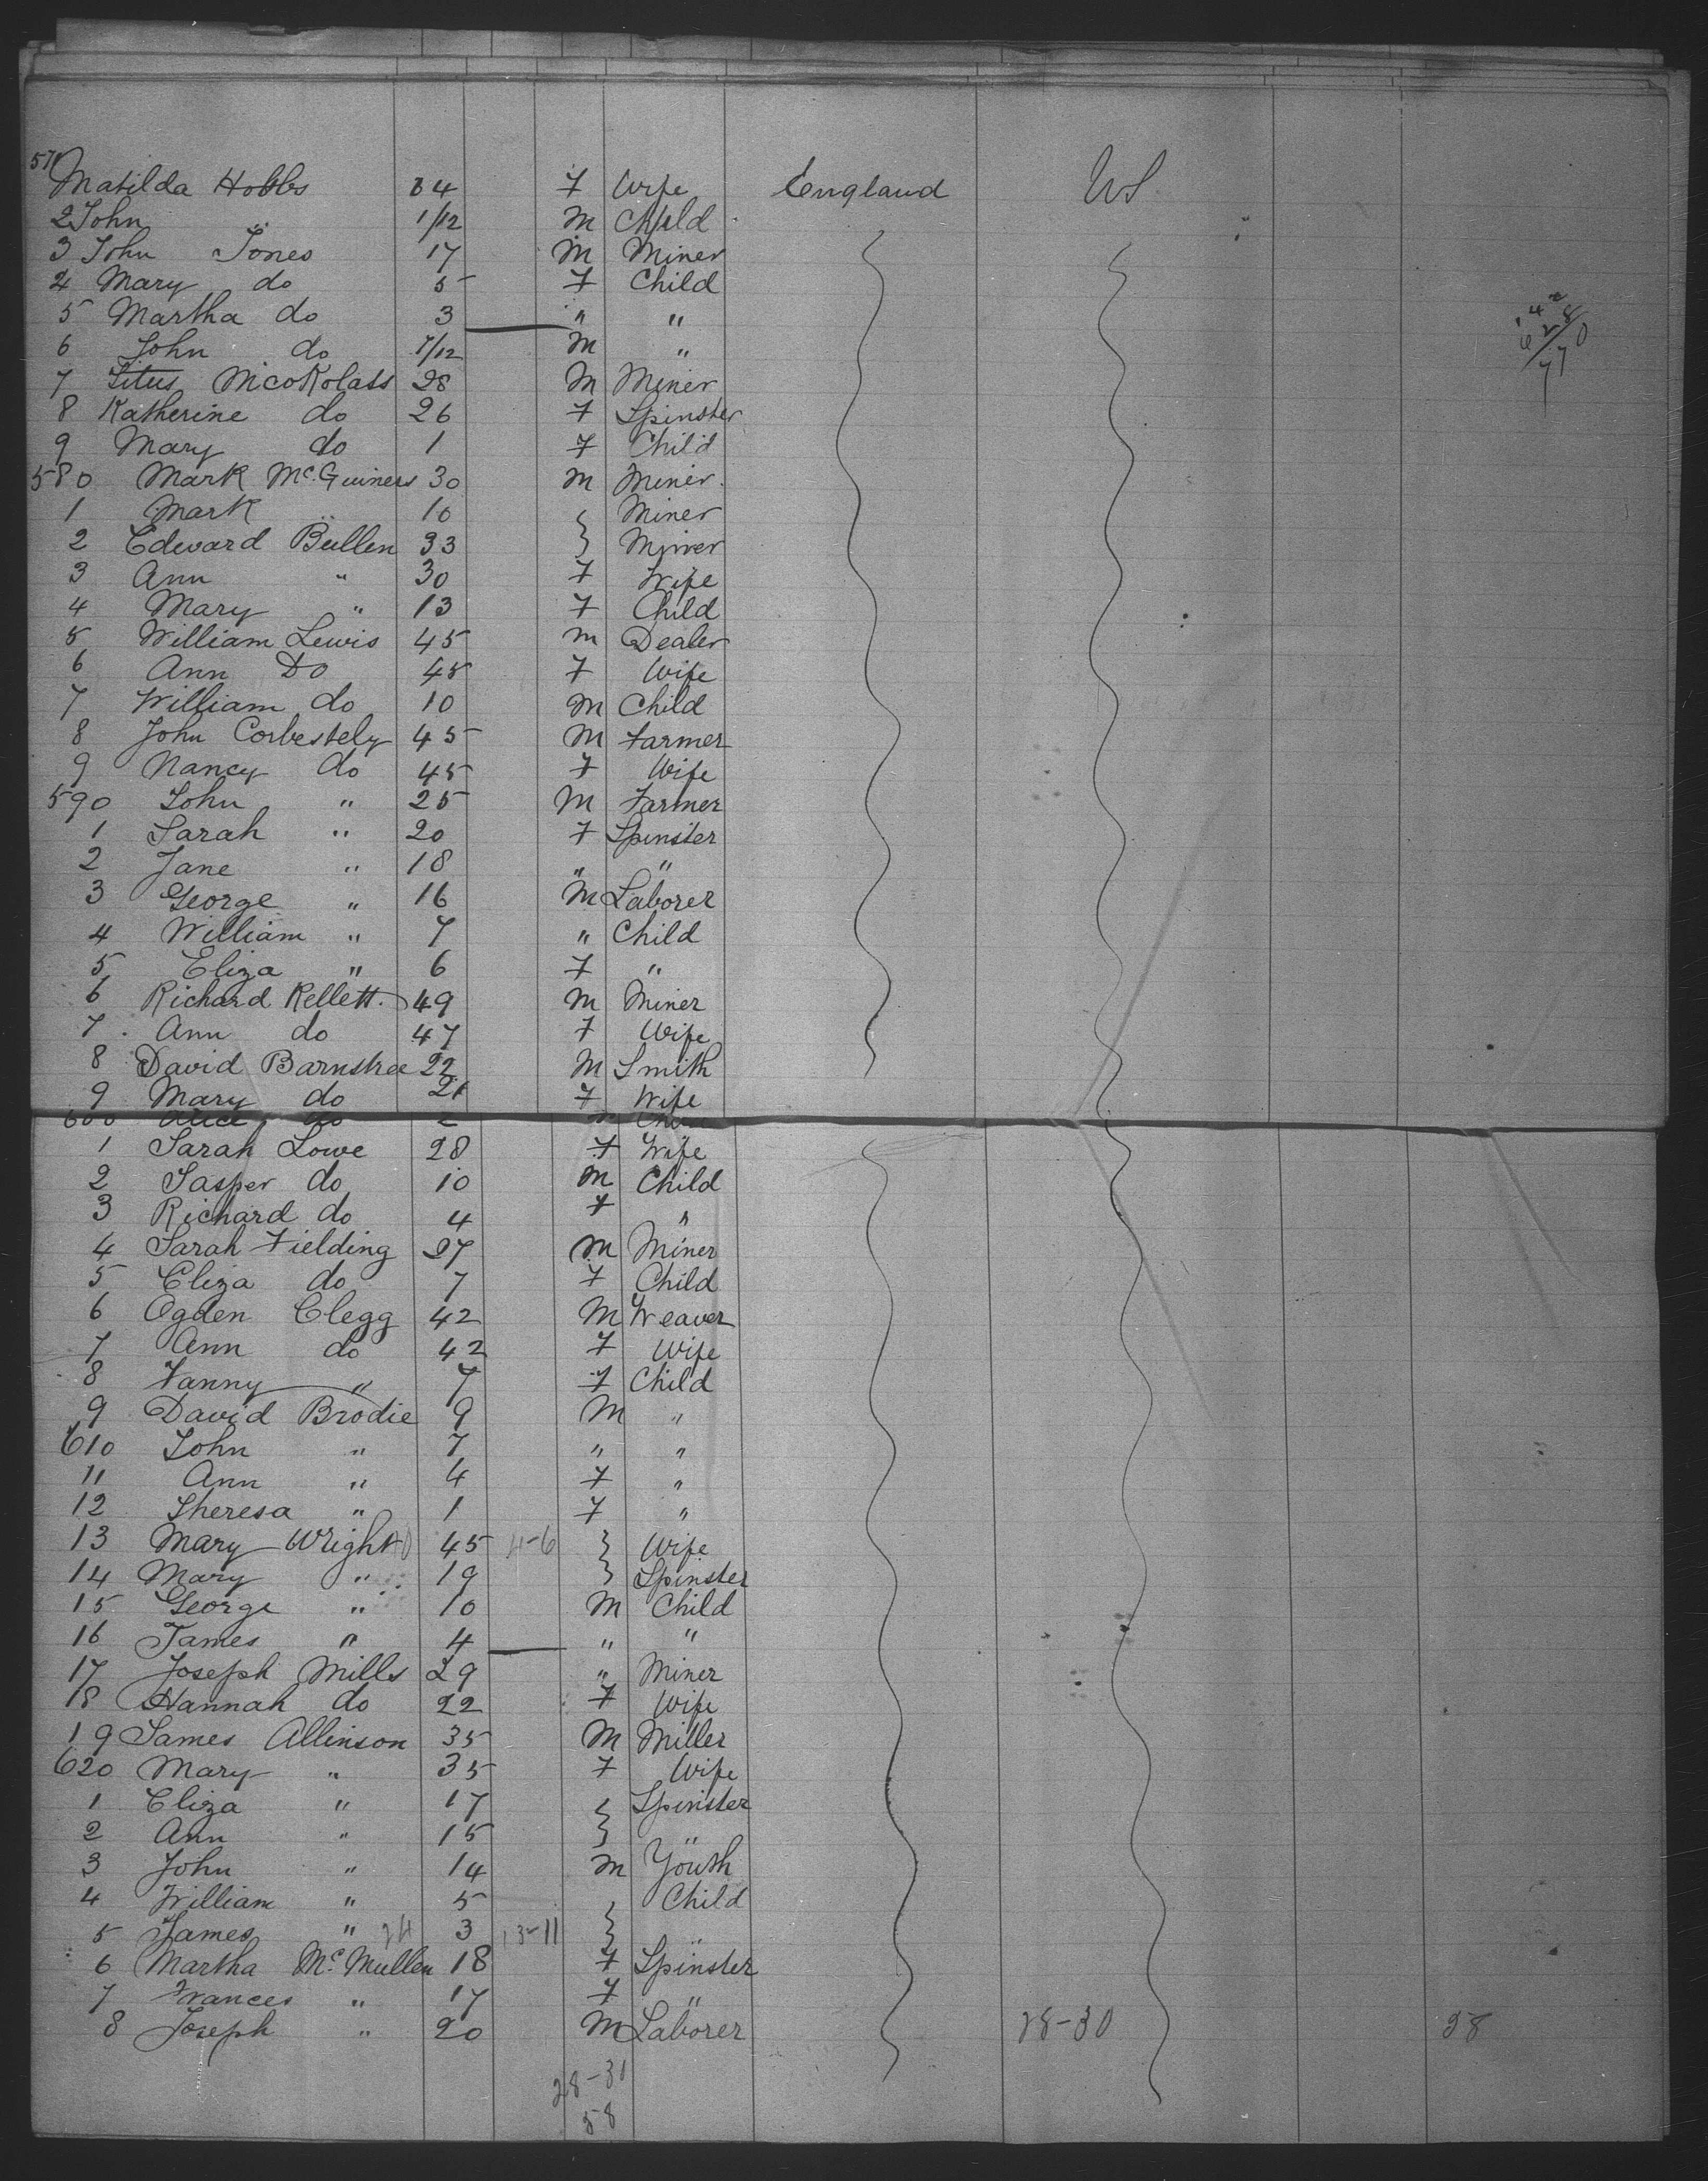 571 Matilda Hobbs 34 F Wife England US
2 John " 1/12 M Child
3 John Jones 17 M Miner
4 Mary do 5 F Child
5 Martha do 3 " "
6 John do 7/12 M "
7 Titus 28 M Miner
8 Katherine do 26 F Spinster
9 Mary do 1 F Child
580 Mark McGuiners 30 M Miner
1 Mark " 10 } Miner
2 Edward Bullen 33 } Miner
3 Ann " 30 F Wife
4 Mary " 13 F Child
5 William Lewis 45 M Dealer
6 Ann Do 45 F Wife
7 William do 10 M Child
8 John Corbestely 45 M Farmer
9 Nancy do 45 F Wife
590 John " 25 M Farmer
1 Sarah " 20 F Spinster
2 Jane " 18 " "
3 George " 16 M Laborer
4 William " 7 " Child
5 Eliza " 6 F "
6 Richard Kellett 49 M Miner
7 Ann do 47 F Wife
8 David Barnstree 22 M Smith
9 Mary do 21 F Wife
600 Alice do 2 Child
1 Sarah Lowe 28 F Wife
2 Jasper do 10 M Child
3 Richard do 4 F "
4 Sarah Fielding 27 M Miner
5 Eliza do 7 F Child
6 Ogden Clegg 42 M Weaver
7 Ann do 42 F Wife
8 Fanny " 7 F Child
9 David Brodie 9 M "
610 John " 7 " "
11 Ann " 4 F "
12 Theresa " 1 F "
13 Mary Wright 45 4-6 } Wife
14 Mary " 19 } Spinster
15 George " 10 M Child
16 James " 4 " "
17 Joseph Mills 29 " Miner
18 Hannah do 22 F Wife
19 James Allinson 35 M Miller
620 Mary " 35 F Wife
1 Eliza " 17 } Spinster
2 Ann " 15 } "
3 John " 14 M Youth
4 William " 5 } Child
5 James " 24 3 13-11 } "
6 Martha McMullen 18 F Spinster
7 Frances " 17 F "
8 Joseph " 20 M Laborer 28-30 58
28-31
58